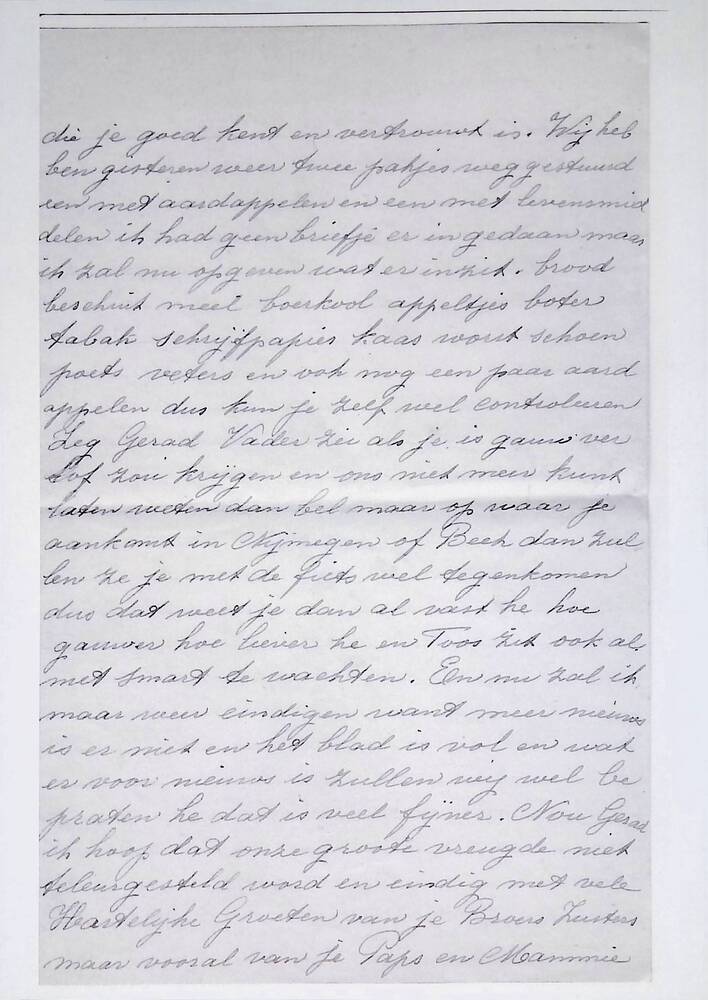 die je goed kent en vertrouwt is. Wij heb
ben gisteren weer twee pakjes weggestuurd
een met aardappelen en een met levensmid
delen ik had geen briefje er in gedaan maar
ik zal nu opgeven wat er in zit. brood
beschuit meel boerkool appeltjes boter
tabak schrijfpapier kaas worst schoen
poets veters en ook nog een paar aard
appelen dus kun je zelf wel controleren
Zeg Gerad Vader zei als je is gauw ver
lof zou krijgen en ons niet meer kunt
laten weten dan bel maar op waar je
aankomt in Nijmegen of Beek dan zul
len ze je met de fiets wel tegenkomen
dus dat weet je dan al vast he hoe
gauwer hoe liever he en Toos zit ook al
met smart te wachten. En nu zal ik
maar weer eindigen want meer nieuws
is er niet en het blad is vol en wat
er voor nieuws is zullen wij wel be
praten he dat is veel fijner. Nou Gerad
ik hoop dat onze groote vreugde niet
teleurgesteld word en eindig met vele
Hartelijke Groeten van je Broers Zusters
maar vooral van je Paps en Mammie